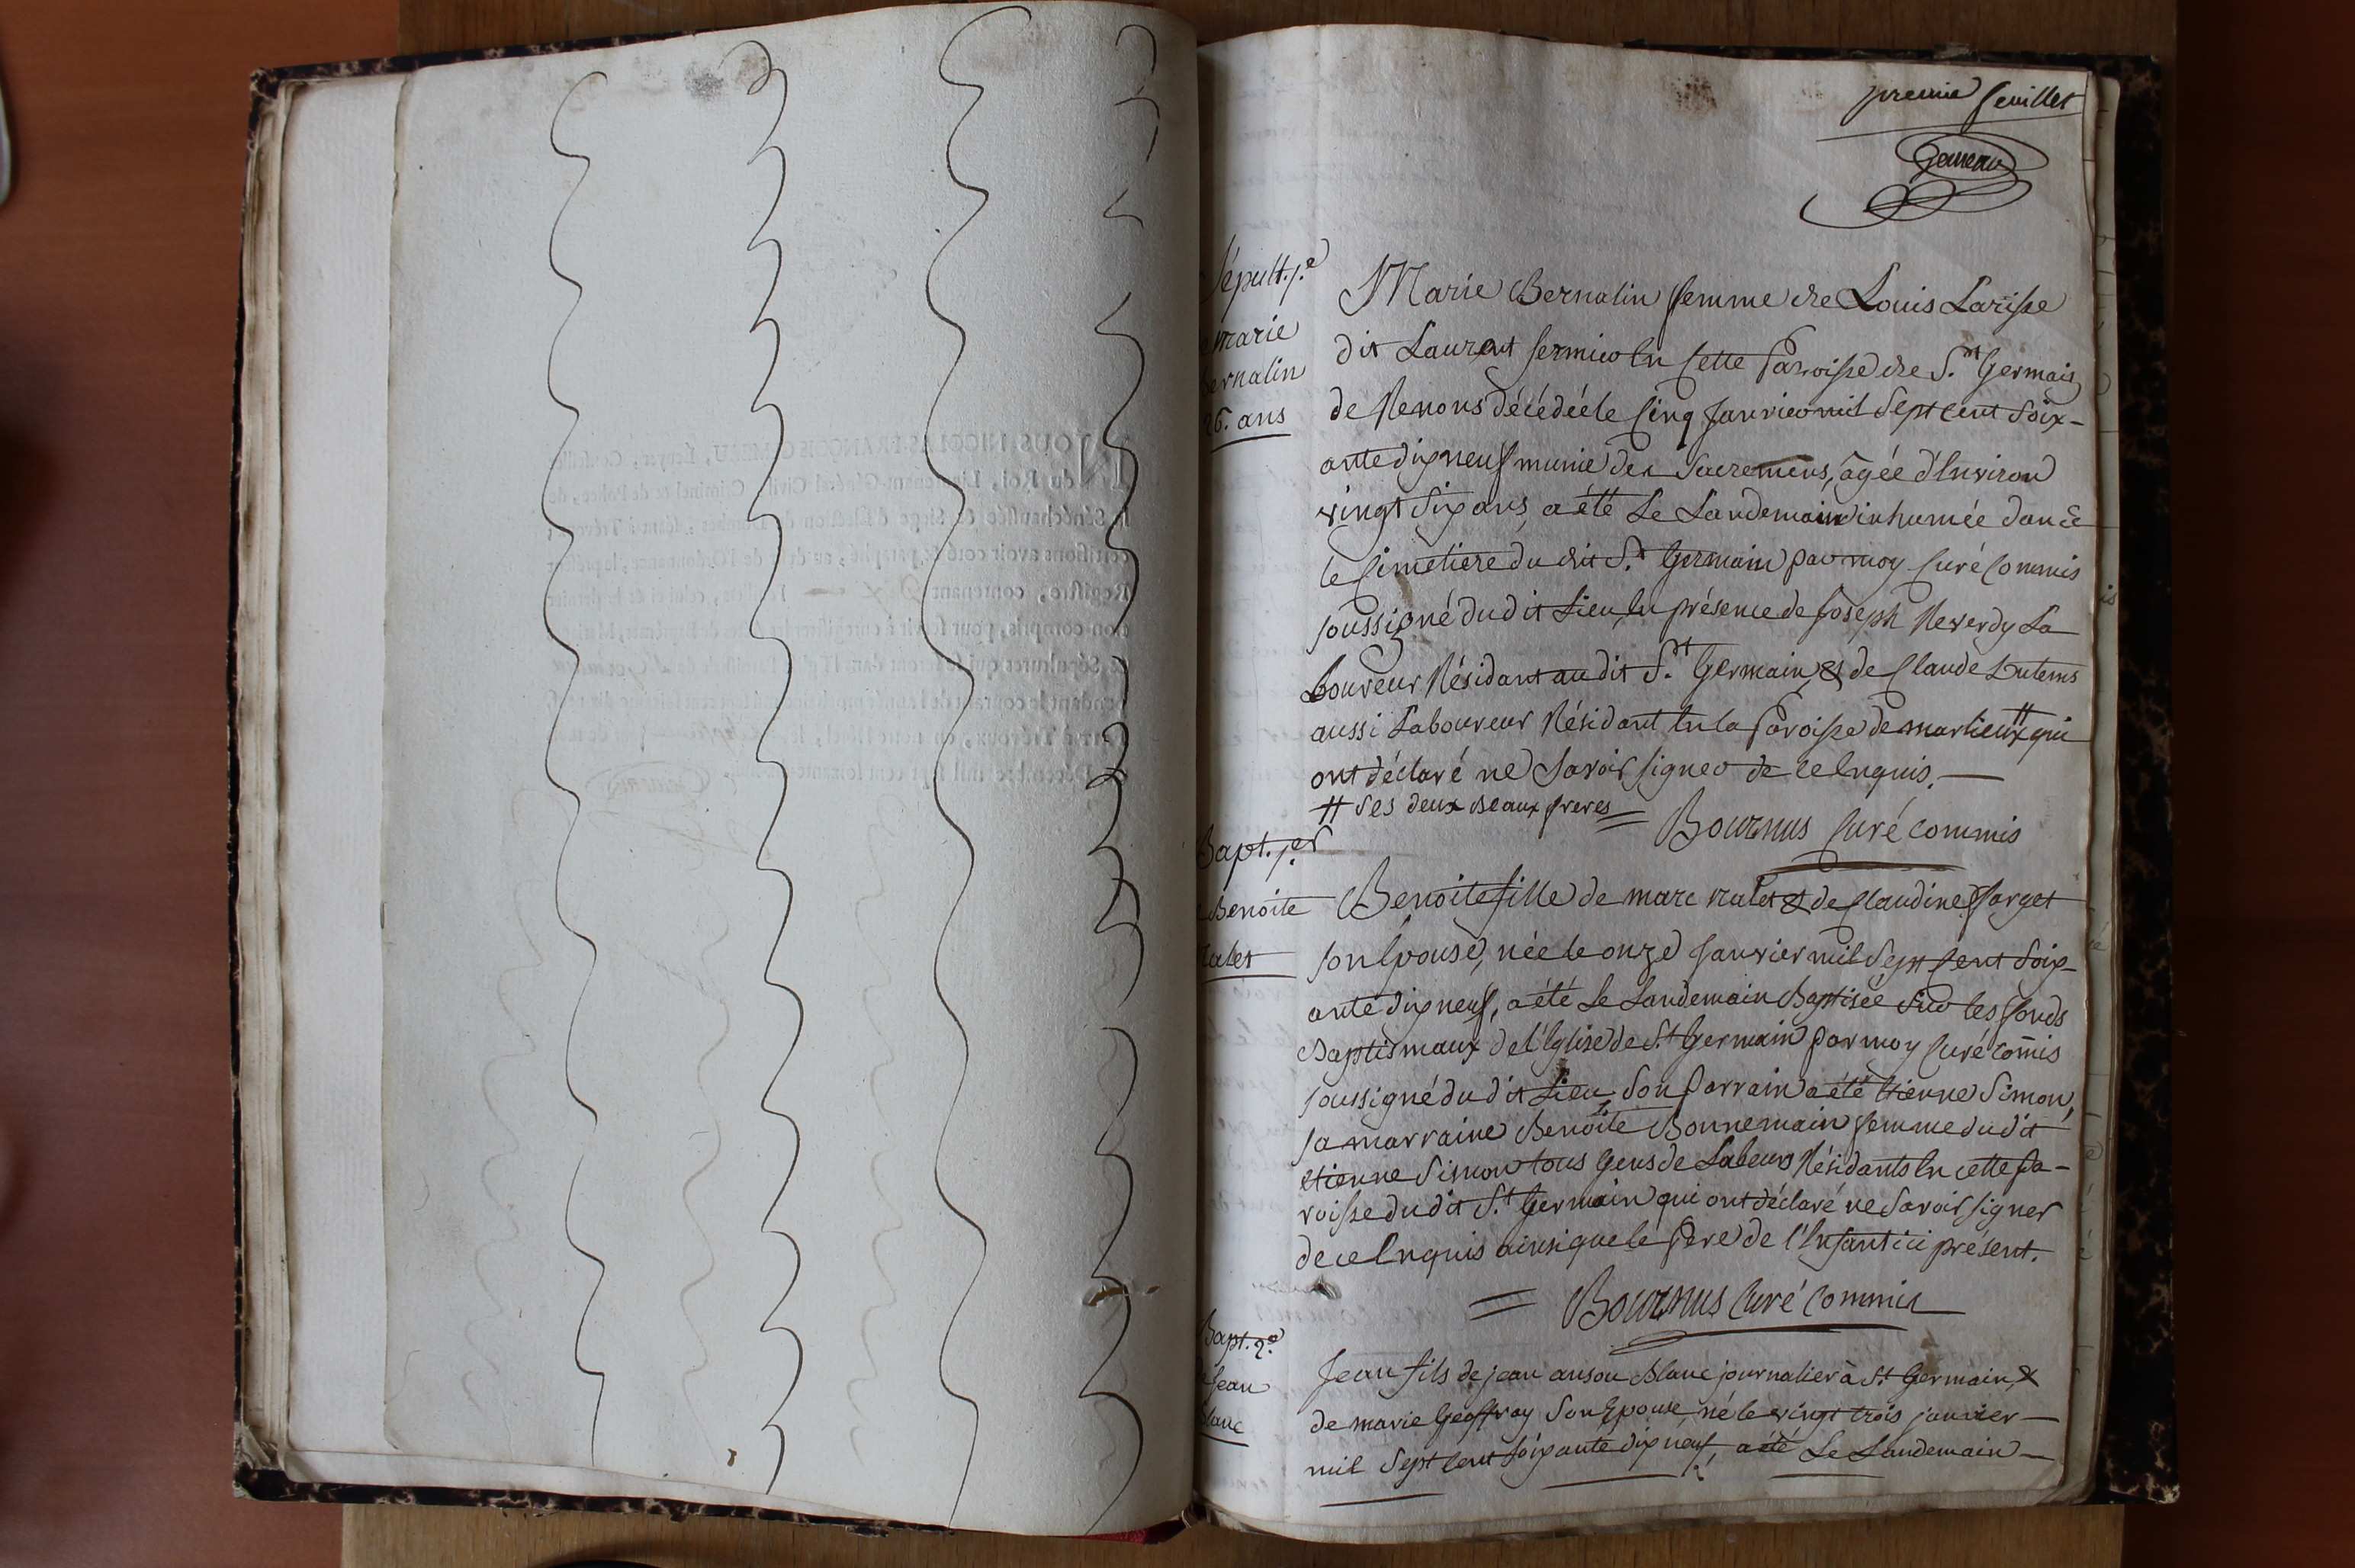 premie feuillet
Gemeau
Sépult. p.e
marie
Bernalin
26. ans
Marie Bernalin femme de Louis Larisse
dit Laurent fermier En Cette Paroisse de S.nt Germain
de Renons décédée le Cinq Janvier mil Sept Cent Soix-
ante dix neuf munie des Sacremens, agée d'Environ
vingt Six ans, a été Le Landemain inhumée dans
le Cimetiere du dit S.t Germain par moy Curé Commis
soussigné du dit Lieu, En présence de Joseph Reverdy La
boureur Résidant au dit S.nt Germain, & de Claude
aussi Laboureur Résidant En la Paroisse de marlieux # qui
ont déclaré ne Savoir signer de ce Enquis. —
# ses deux Beaux freres = Bournus Curé commis
Bapt. p.er
Benoite
ralet
Benoite fille de marc ralet & de Claudine farget
son Epouse, née le onze Janvier mil Sept Cent Soix-
ante dix neuf, a été Le Landemain Baptisée Sur les fonds
Baptismaux de l'Eglise de S.t Germain par moy Curé com̃is
soussigné du dit Lieu Son Parrain a été Etienne Simon,
sa marraine Benoite Bonnemain femme du dit
etienne Simon tous Gens de Labeurs Résidants En cette Pa-
roisse du dit S.t Germain qui ont déclaré ne Savoir signer
de ce Enquis ainsi que le Pere de l'Enfant ici présent.
= Bournus Curé Commis
Bapt. 2.e
Jean
Blanc
Jean fils de jean Blanc journalier à S.t Germain, &
de marie Geoffray Son Epouse, né le vingt trois janvier —
mil Sept Cent Soixante dix neuf, a été Le Landemain —